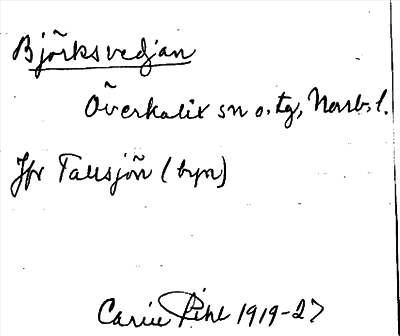 Björksvedjan
Överkalix sn o. tg, Norrb. l.
Jfr Tallsjön (byn)
Carin Pihl 1919-27